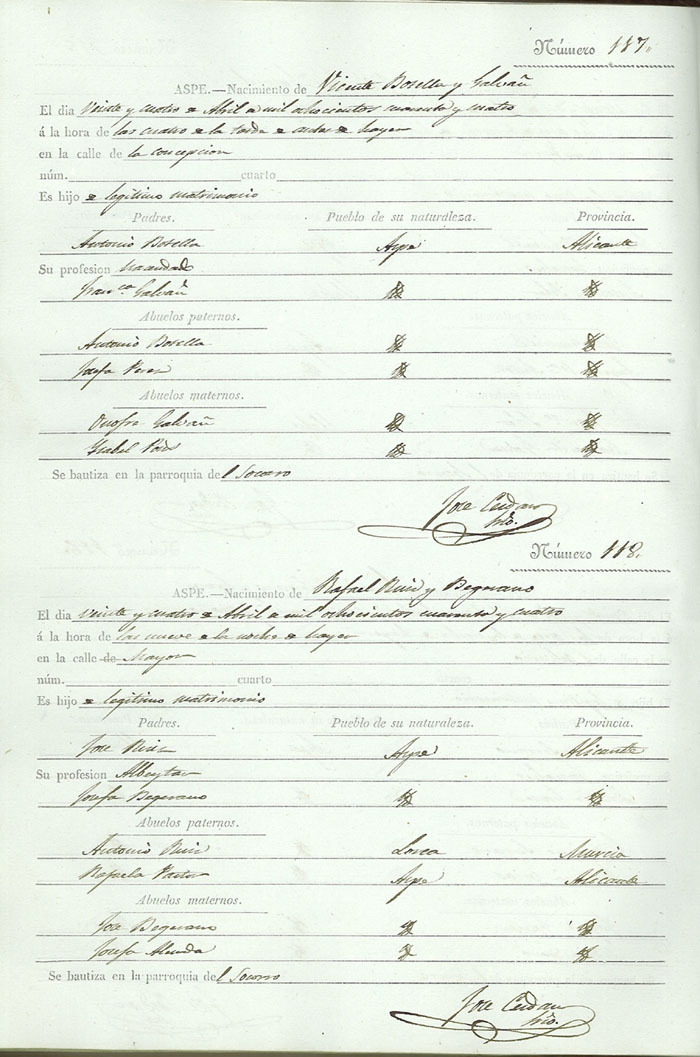 Número 117.
ASPE.—Nacimiento de Vicente Botella y Galvañ
El dia veinte y cuatro de Abril de mil ochocientos cuarenta y cuatro
á la hora de las cuatro de la tarde de
en la calle de la concepcion
núm. cuarto
Es hijo de legitimo matrimonio
Padres. Pueblo de su naturaleza. Provincia.
Antonio Botella Aspe Alicante
Su profesion
Franca Galvañ
Abuelos paternos.
Antonio Botella
Josefa Perez
Abuelos maternos.
Onofre Galvañ
Ysabel
Se bautiza en la parroquia del Socorro
Jose Cerdan
Srio.
Número 118.
ASPE.—Nacimiento de Rafael Ruiz y Begerano
El dia veinte y cuatro de Abril de mil ochocientos cuarenta y cuatro
á la hora de las nueve de la noche de
en la calle de Mayor
núm. cuarto
Es hijo de legitimo matrimonio
Padres. Pueblo de su naturaleza. Provincia.
Jose Ruiz Aspe Alicante
Su profesion Albeytar
Josefa Begerano
Abuelos paternos.
Antonio Ruiz Lorca Murcia
Rafaela Pastor Aspe Alicante
Abuelos maternos.
Jose Begerano
Josefa Almda
Se bautiza en la parroquia del Socorro
Jose Cerdan
Srio.